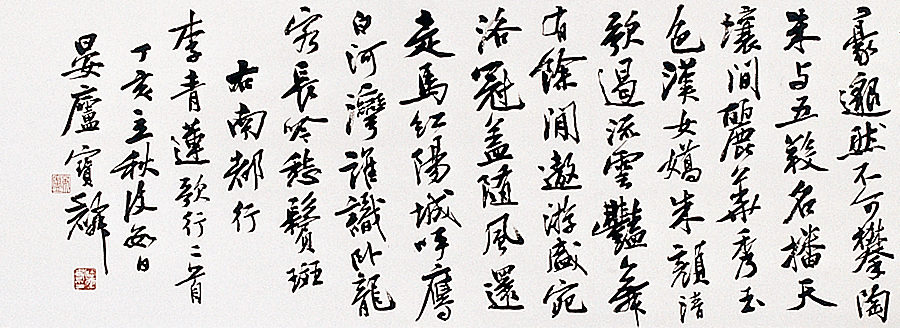 豪邈然不可攀陶
朱与五羖名播天
壤間麗華秀玉
色漢女嬌朱顏清
歌遏流雲豔舞
有餘閒遨游盛宛
洛冠蓋隨風還
走馬紅陽城呼鷹
白河灣誰識卧龍
客長吟愁鬢斑
右南都行
李青蓮歌行二首
丁亥立秋後日
晏廬寶麟